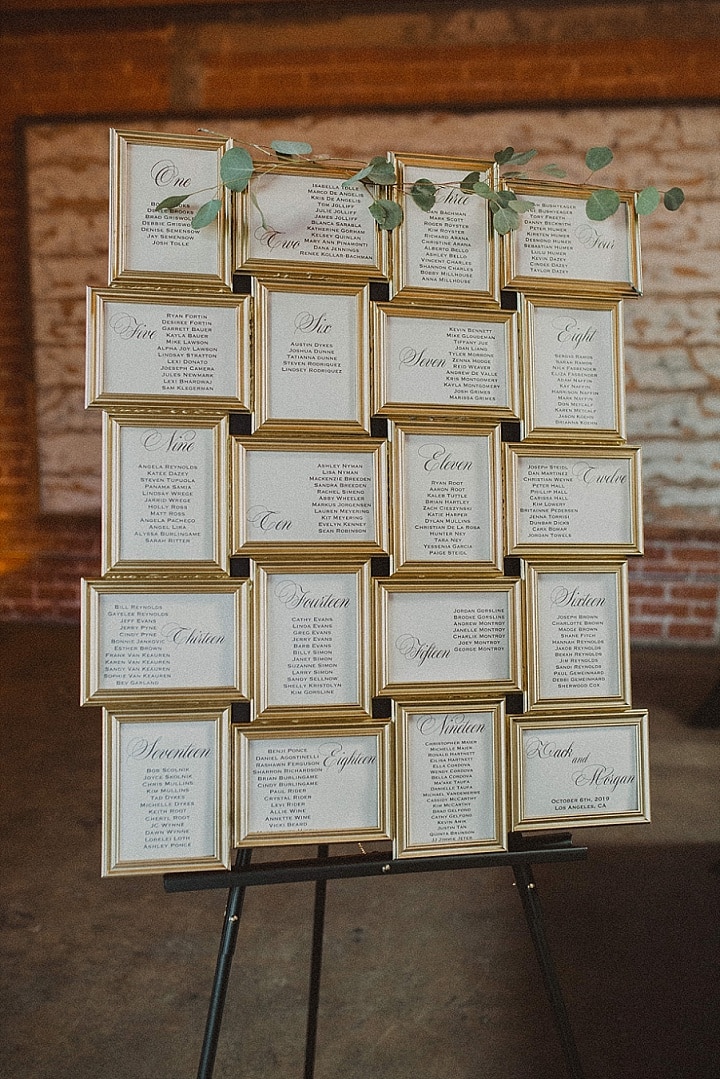 One
Brad Griswold
Debbie Griswold
Denise Semenson
Jay Semenson
Josh Tolle
Isabella Tolle
Marco De Angelis
Kris De Angelis
Tom Jolliff
Julie Jolliff
James Jolliff
Blanca Sarabla
Katherine Gorham
Kelsey Quinlan
Mary Ann Pinamonti
Dana Jennings
Renee Kollar-Bachman
Two
Three
Dan Bachman
Mark Scott
Roger Royster
Kim Royster
Richard Arana
Christine Arana
Alberto Bello
Ashley Bello
Vincent Charles
Shannon Charles
Bobby Millhouse
Anna Millhouse
Tory Freeth
Daniel Beckwith
Peter Humer
Kirsten Humer
Desmond Humer
Sebastian Humer
Lulu Humer
Kevin Dazey
Cindee Dazey
Taylor Dazey
Four
Five
Ryan Fortin
Desiree Fortin
Garrett Bauer
Kayla Bauer
Mike Lawson
Alpha Joy Lawson
Lindsay Stratton
Lexi Donato
Joseph Camera
Jules Newmark
Lexi Bhardwaj
Sam Klegerman
Six
Austin Dykes
Joshua Dunne
Tatianna Dunne
Steven Rodriquez
Lindsey Rodriquez
Seven
Kevin Bennett
Mike Gloudeman
Tiffany Jue
Joan Liang
Tyler Morrone
Zenna Hodge
Reid Weaver
Andrew De Valle
Kris Montgomery
Kayla Montgomery
Josh Grimes
Marissa Grimes
Eight
Sergio Ramos
Sarah Ramos
Nick Fassender
Eliza Fassender
Adam Naffin
Kay Naffin
Harrison Naffin
Mark Naffin
Don Metcalf
Karen Metcalf
Jason Koehn
Brianna Koehn
Nine
Angela Reynolds
Katee Dazey
Steven Topuola
Panama Samia
Lindsay Wrege
Jarrid Wrege
Holly Ross
Matt Ross
Angela Pacheco
Angel Lira
Alyssa Burlingame
Sarah Ritter
Ten
Ashley Nyman
Lisa Nyman
Mackenzie Breeden
Sandra Breeden
Rachel Simeno
Abby Wheeler
Markus Jorgensen
Lauren Meyering
Kit Meyering
Evelyn Kenney
Sean Robinson
Eleven
Ryan Root
Aaron Root
Kaleb Tuttle
Brian Hartley
Zach Cieszynski
Katie Harper
Dylan Mullins
Christian De La Rosa
Hunter Ney
Tara Ney
Yessenia Garcia
Paige Steidl
Joseph Steidl
Dan Martinez
Christian Weyne
Peter Hall
Phillip Hall
Carissa Hall
Kim Lowery
Britainne Pedersen
Jenna Torrisi
Dunbar Dicks
Cara Bomar
Jordan Towels
Twelve
Bill Reynolds
Gaylee Reynolds
Jeff Evans
Jerry Pyne
Cindy Pyne
Bonnie Jankovic
Esther Brown
Frank Van Keauren
Karen Van Keauren
Sandy Van Keauren
Sophiz Van Keauren
Bev Garland
Thirteen
Fourteen
Cathy Evans
Linde Evans
Greg Evans
Jerry Evans
Barb Evans
Billy Simon
Janet Simon
Suzanne Simon
Larry Simon
Sandy Sellnow
Shelly Kristolyn
Kim Gorsline
Fifteen
Jordan Gorsline
Brodie Gorsline
Andrew Montroy
Janelle Montroy
Charlie Montroy
Joey Montroy
George Montroy
Sixteen
Joseph Brown
Charlotte Brown
Madge Brown
Shane Fitch
Hannah Reynolds
Jakob Reynolds
Berah Reynolds
Jim Reynolds
Sandi Reynolds
Paul Gemeinhard
Debbi Gemeinhard
Sherwood Cox
Seventeen
Bob Scolnik
Joyce Skolnik
Chris Mullins
Kim Mullins
Tad Dykes
Michelle Dykes
Keith Root
Cheryl Root
JC Wynne
Dawn Wynne
Lorelei Loth
Ashley Ponce
Benji Ponce
Daniel Agostinelli
Rashawn Ferguson
Sharron Richardson
Brian Burlingame
Cindy Burlingame
Paul Rider
Crystal Rider
Levi Rider
Allie Wine
Annette Wine
Vicki Beard
Eighteen
Nineteen
Christopher Maier
Michelle Maier
Ronald Hartnett
Eilisa Hartnett
Ella Cordova
Wendy Cordova
Bella Cordova
Danielle Taufa
Michael Vandemerwe
Cassidy McCarthy
Kim McCarthy
Brad Gelfong
Cathy Gelfong
Kevin Anik
Justin Tan
Quinta Brunson
JJ Jimmie Jeter
Zack
and
Morgan
October 6th, 2019
Los Angeles, CA